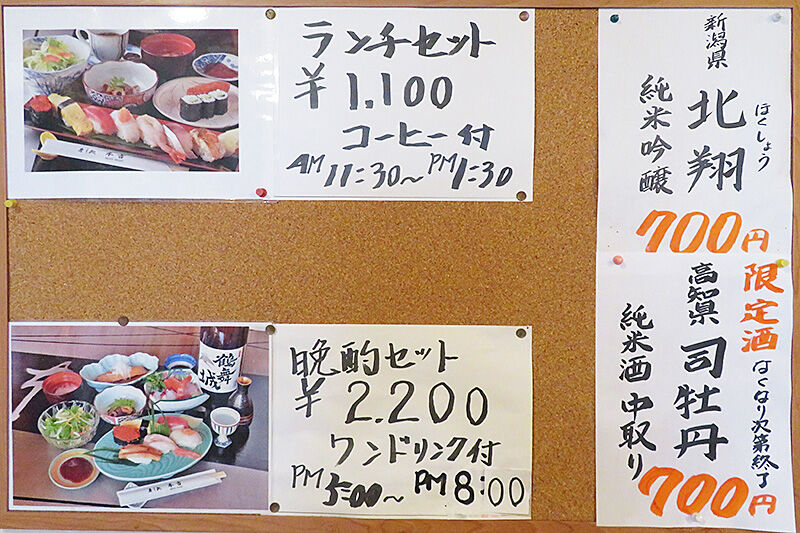 ランチセット
¥1,100
コーヒー付
AM11:30~PM1:30
晩酌セット
¥2.200
ワンドリンク付
PM5:00~PM8:00
鶴舞城
新潟県
北翔
ほくしょう
純米吟醸
700円
限定酒
なくなり次第終了
高知県
司牡丹
純米酒中取り
700円